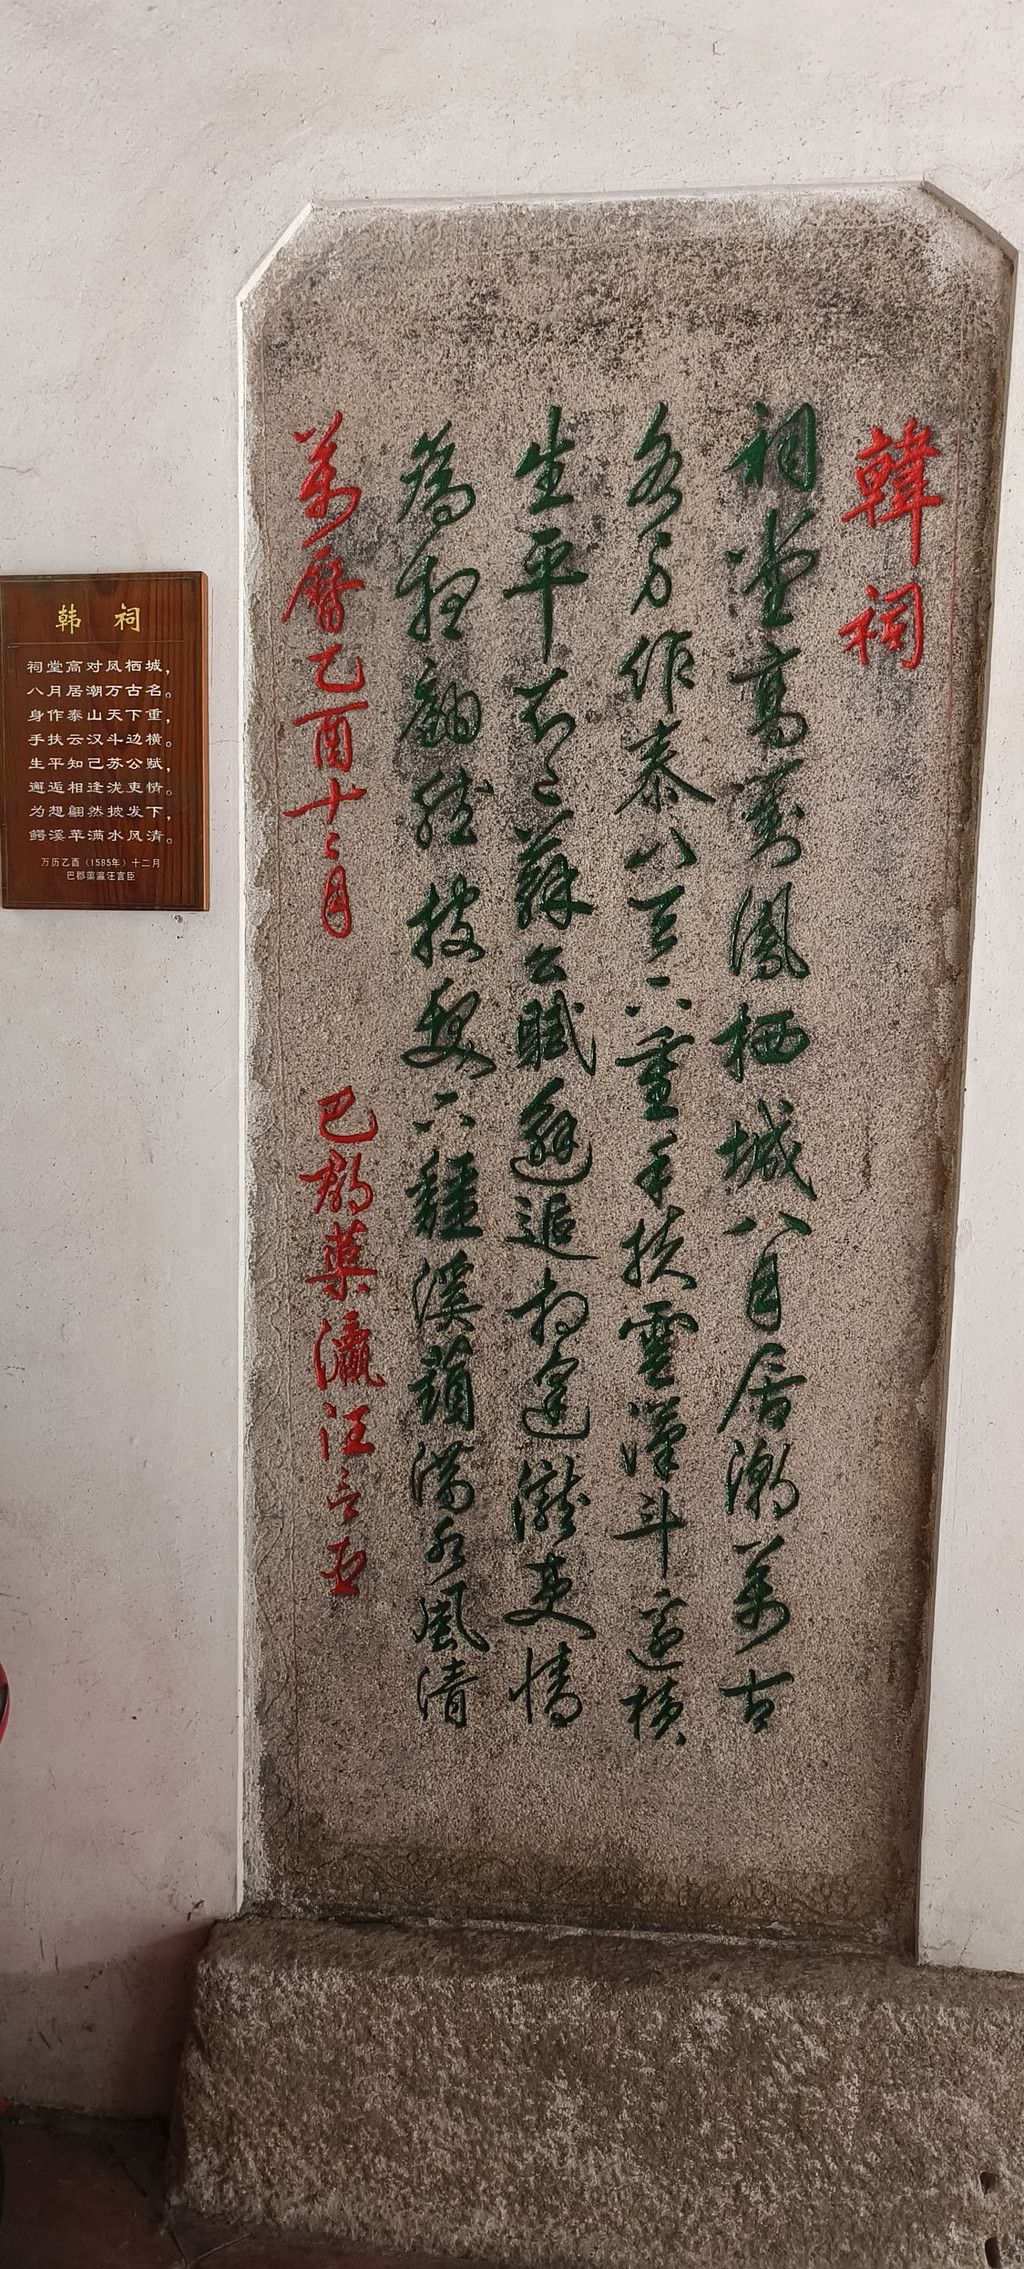 韩 祠
祠堂高对凤栖城，
八月居潮万古名。
身作泰山天下重，
手扶云汉斗边横。
生平知己苏公赋，
邂逅相逢泷吏情。
为想翩然披发下，
鳄溪苹满水风清。
万历乙酉（1585年）十二月
巴郡蕖瀛汪言臣
韓祠
祠堂高對鳳栖城八月居潮萬古
名身作泰山天下重手扶雲漢斗邊橫
生平知己蘇公賦邂逅相逢瀧吏情
為想翩然披髮下鱷溪蘋滿水風清
萬曆乙酉十二月 巴郡蕖瀛汪言臣